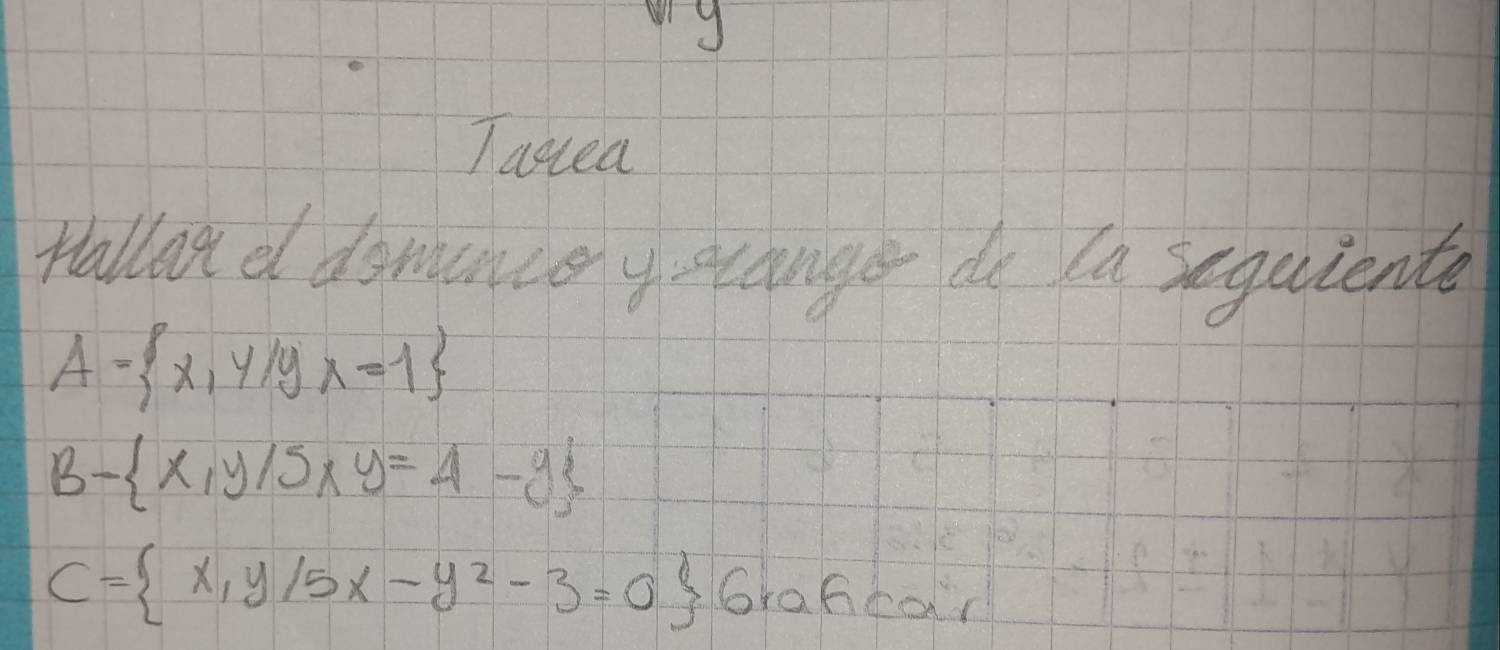 y
Tarea
Hallar el dominio y rango de la siguiente
A={x,y/yx=1}
B-{x,y/5xy=1 -y}
C={ x,y/5x-y²-3=0} Graficar